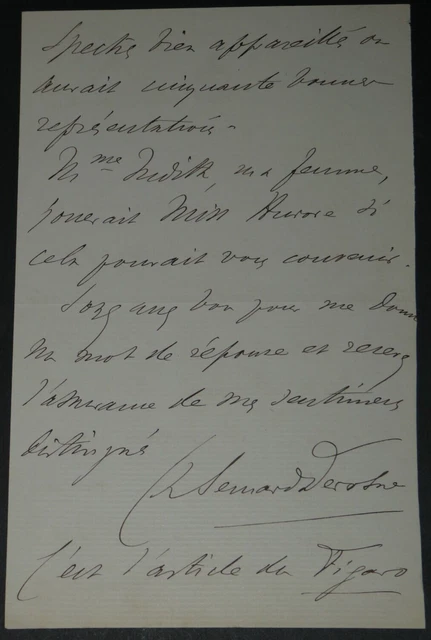 spectres bien appareillés on
aurait cinquante bonnes
représentations.
Mme Judith, ma femme,
jouerait Miss Aurore si
cela pouvait vous convenir.
Soyez assez bon pour me donner
un mot de réponse et recevez
l'assurance de mes sentiments
distingués
Bernard Derosne
C'est l'article du Figaro